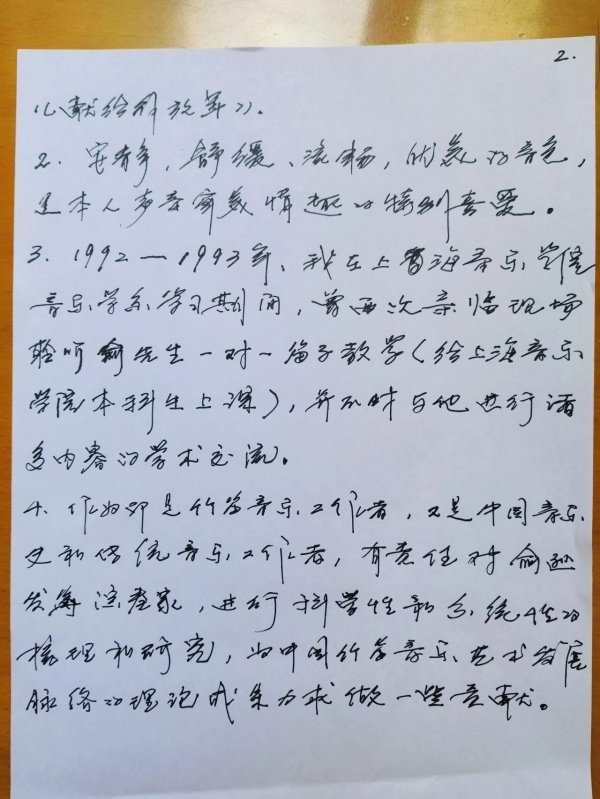 2.
《献给解放军》。
2. 安静,舒缓、流畅,优美的音色,
是本人声音审美情趣的特别喜爱。
3. 1992—1993年、我在上海音乐学院
音乐学系学习期间,曾两次亲临现场
聆听俞先生一对一笛子教学(给上海音乐
学院本科生上课),并不时与他进行诸
多内容的学术交流。
4. 作为即是竹笛音乐工作者,又是中国音乐
史和传统音乐工作者,有责任对俞逊
发笛演奏家,进行科学性和系统性的
梳理和研究,为中国竹笛音乐艺术发展
脉络的理论成果力求做一些贡献。